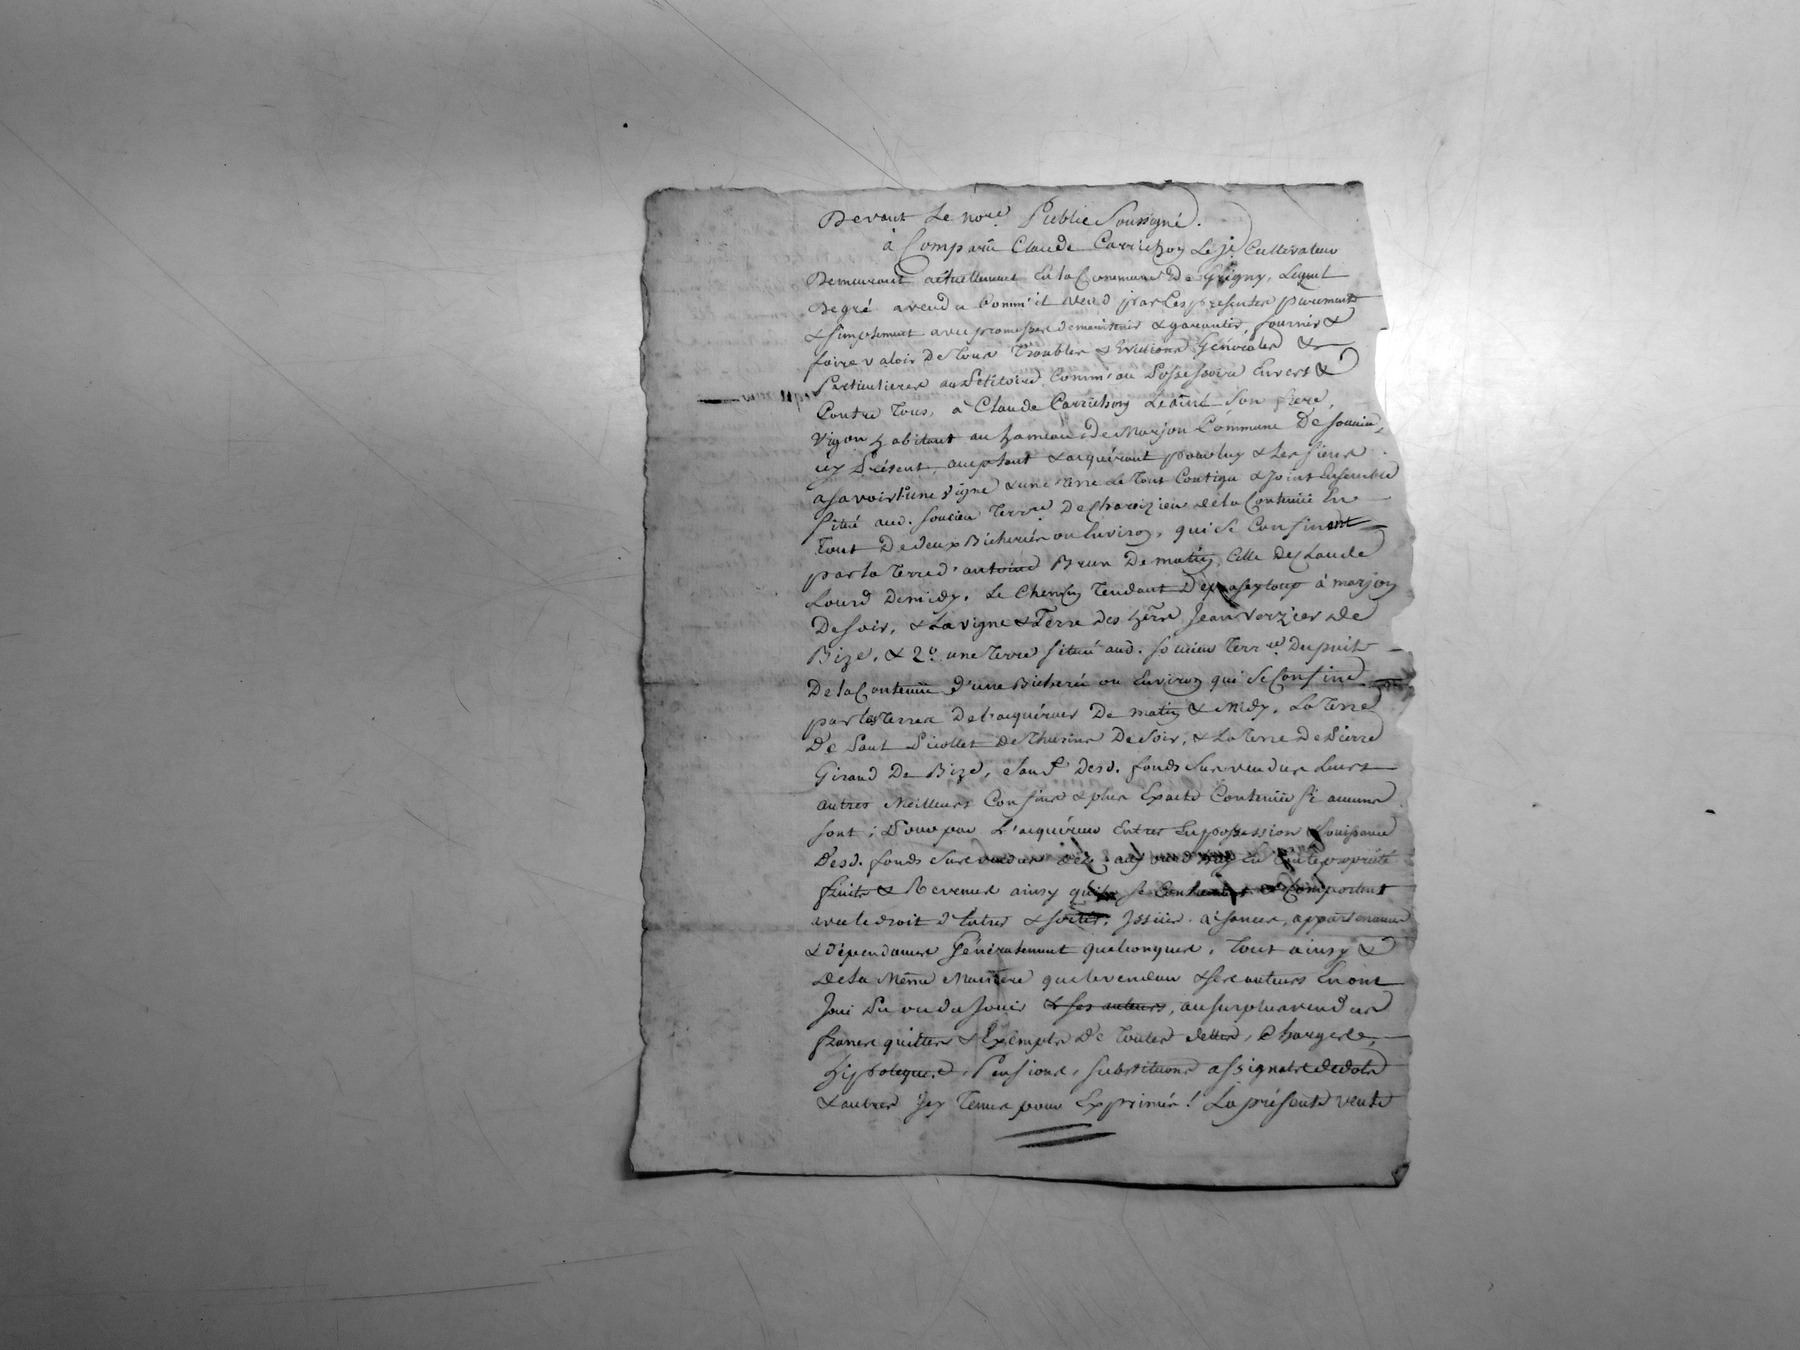 Devant Le nore. Public Soussigné.
à Comparû Claude Carrichon Le je. Cultivateur
Demeurant actuellement En la Commune De Grigny, Lequel
De gré a vendu Comm'il vend par Les presentes purement
& simplement avec promesse de maintenir & garantir, fournir &
faire valoir De Tous Troubles & Evictions Généralles &
Particulieres au Pétitoire Comm'au Possessoire Envers &
Contre Tous, à Claude Carrichon Le ainé Son frere,
vigon habitant au hameau De Marjon Commune De Soucieu,
icy Présent, acceptant & acquérant pour luy & Les siens
asavoir une vigne & une Terre Le Tout Contigu & Joint Ensemble
Situé aud. Soucieu Terre. De de la Contenüe En
Tout De deux Bicherées ou Environ, qui Se Confinent
par la Terre d'antoine Brun De matin, Celle De Claude
De midy, Le Chemin Tendant De à marjon
De soir, & La vigne & Terre des hers. Jean Verzier De
Bize, & 2°. une Terre Situé aud. Soucieu Terr.re Du puit
De la Contenüe d'une Bicherée ou Environ qui Se Confine
par les Terres De l'acquéreur De matin & midy, La Terre
De De Thurins De Soir, & La Terre De Pierre
Giraud De Bize, Sauf Desd. fonds Sus vendus Leurs
autres Meilleurs Confins & plus Exacte Contenüe Si aucuns
Sont; Pour par L'acquéreur Entrer En possession & Jouissance
Desd. fonds Sus vendus En Toute propriété
fruits & Revenus ainsy qu'ils Se Contiennent & Comportent
avec le droit d'Entrer & Sortir, Issües, aisances, appartenances
& dépendances Généralement quelconques, Tout ainsy &
De la Même Maniere que le vendeur & Ses auteurs En ont
Joui Pu ou du Jouir & ses auteurs, au Surplus vendus
francs quittes & Exempts De Toutes dettes, Charges,
hipoteques, Pensions, Substitutions assignats de dote
& autres icy Tenus pour Exprimés! La présente vente